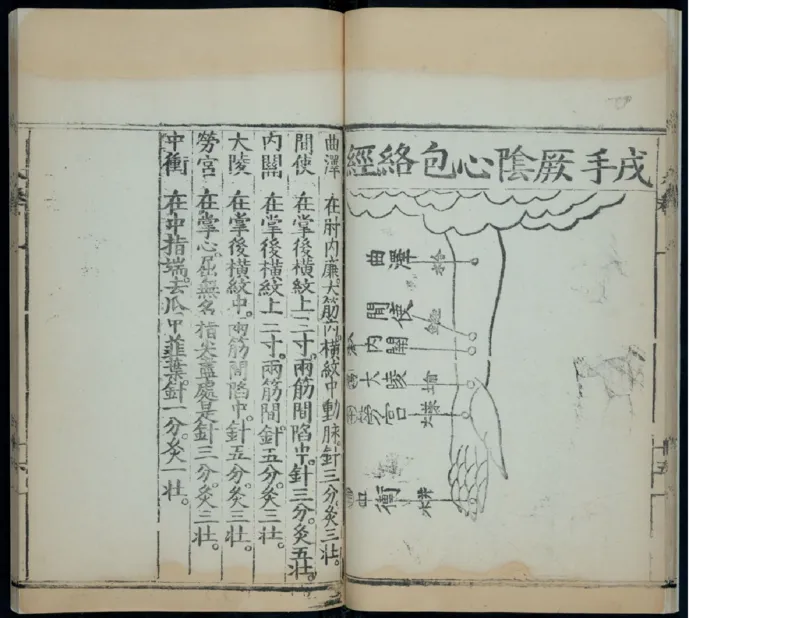 戌手厥陰心包絡經
曲澤 合
間使 經
内關
大陵 土俞
勞宮 火榮
中衝 木井
曲澤 在肘内廉大筋内横紋中動脉。針三分灸三壯。
間使 在掌後横紋上三寸。兩筋間陷中。針三分灸五壯。
内關 在掌後横紋上二寸。兩筋間。針五分。灸三壯。
大陵 在掌後横紋中。兩筋間陷中。針五分。灸三壯。
勞宮 在掌心。屈無名指尖盡處是針三分。灸三壯。
中衝 在中指端。去爪甲韮葉。針一分。灸一壯。